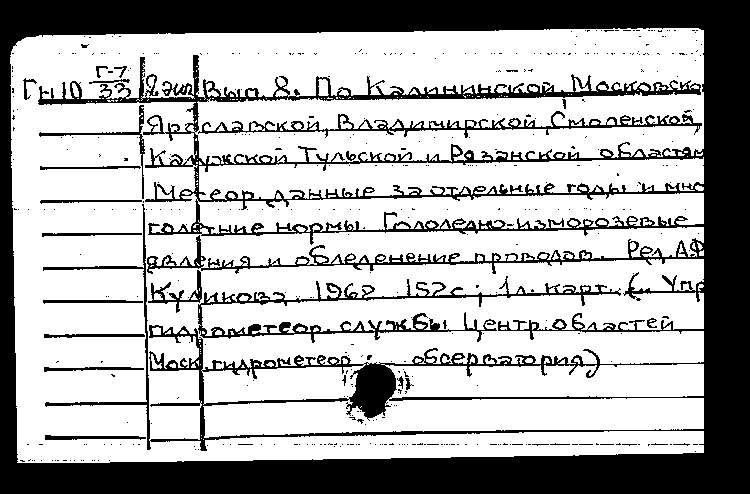 Гн10 Г-7/33 2 экз Вып. 8. По Калининской, Московско
Ярославской, Владимирской, Смоленской,
Калужской, Тульской и Рязанской областям
Метеор. данные за отдельные годы и мно
голетние нормы. Гололедно-изморозевые
явления и обледенение проводов. Ред. А.Ф
Куликова. 1968 152с; 1л. карт. (.. Упр
гидрометеор. службы Центр. областей.
Моск. гидрометеор. обсерватория)